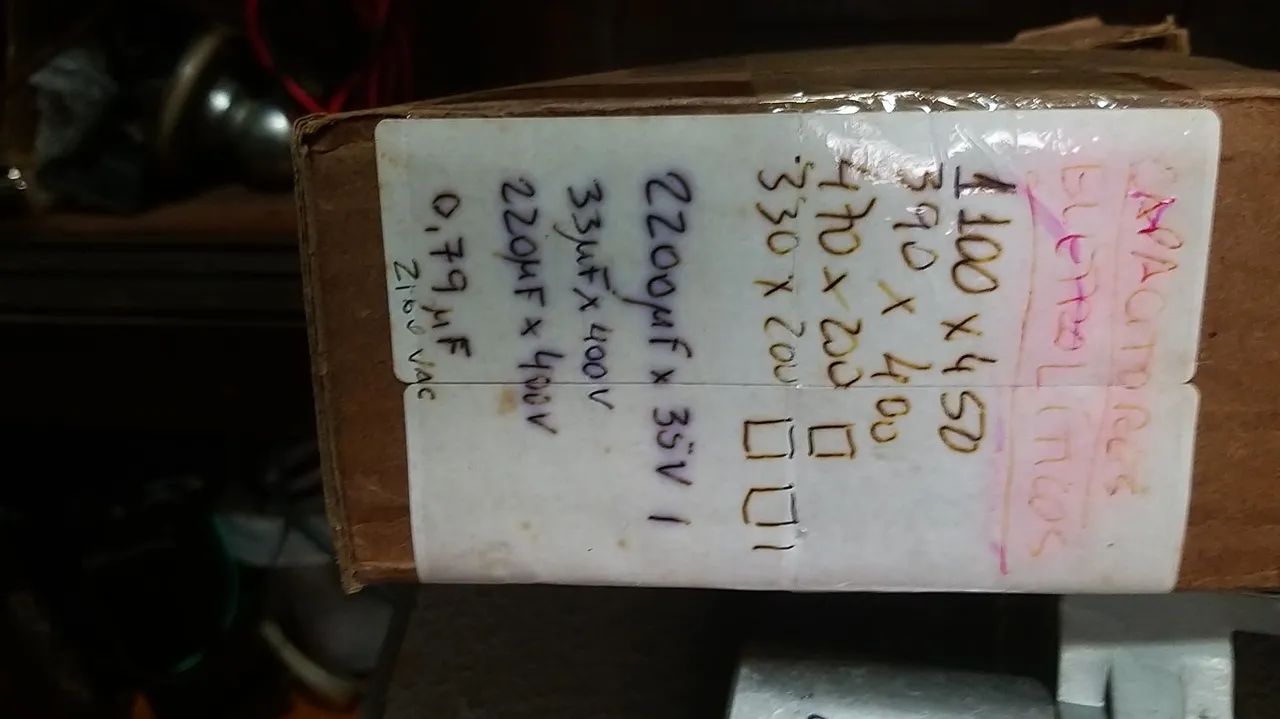 CAPACITORES
ELETROLITICOS
1 100 x 450
390 x 400
470 x 200
330 x 200
2200µF x 35V 1
33µF x 400V
220µF x 400V
0,79µF
2100 VAC